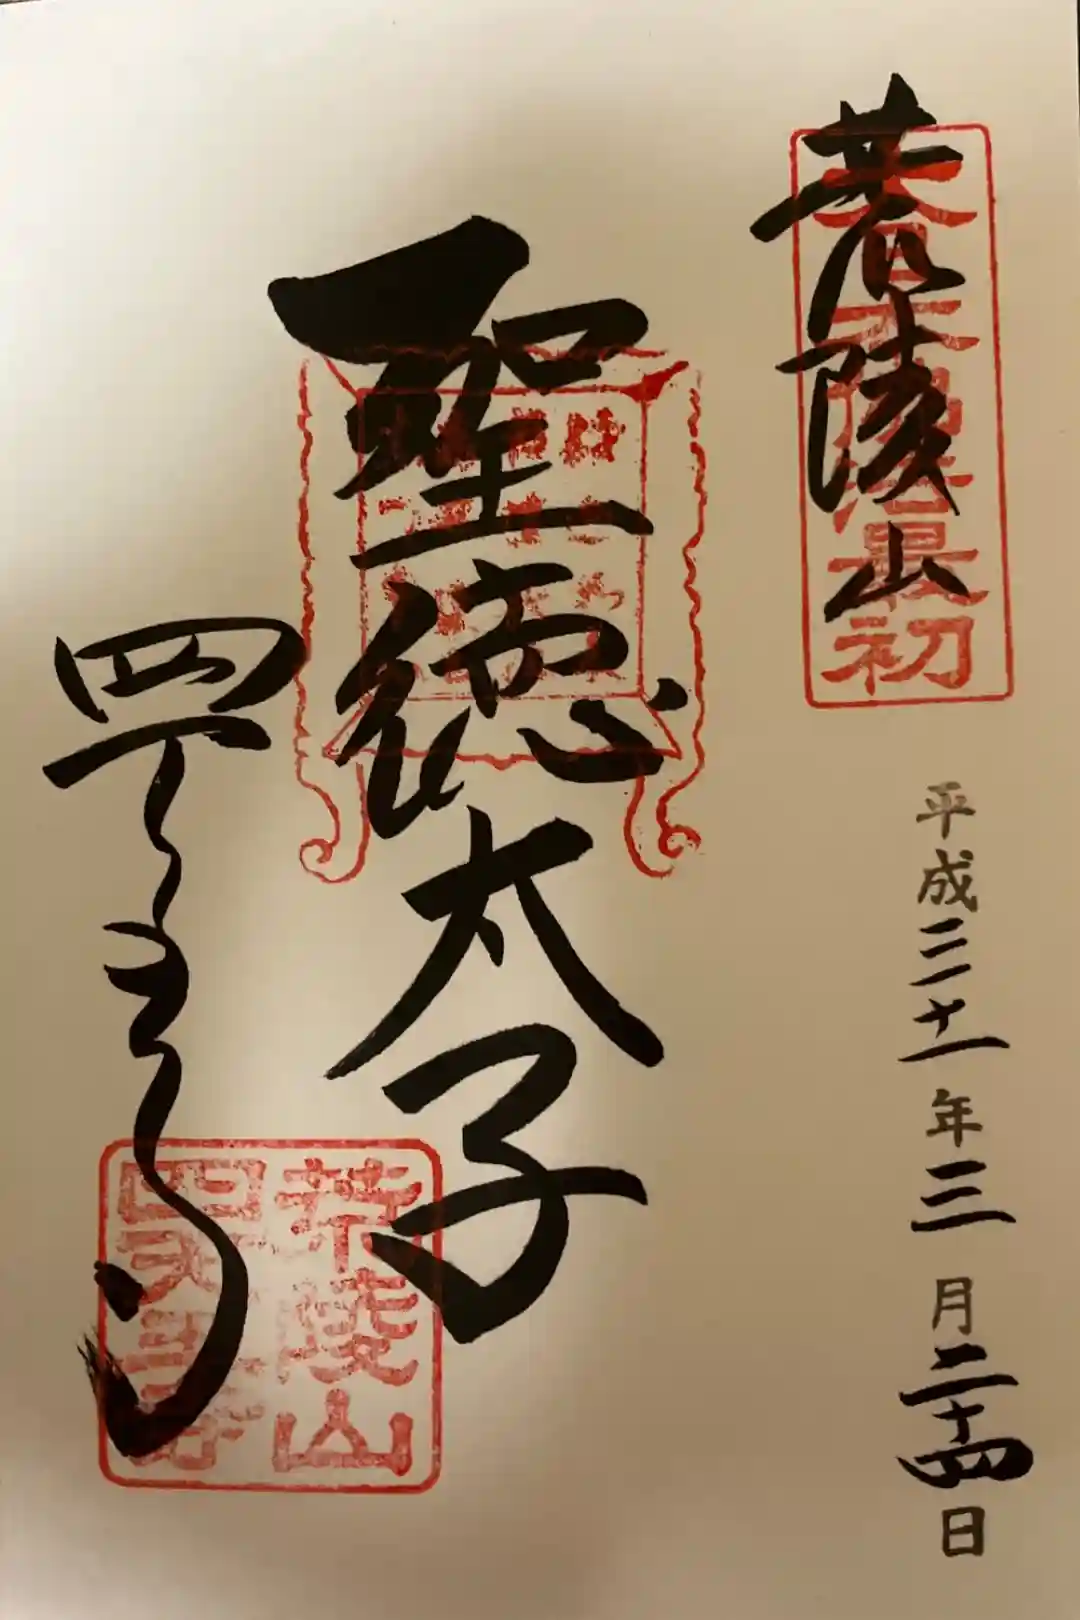 荒陵山
大日本佛法最初
平成三十一年三月二十四日
聖徳太子
四天王寺
荒陵山
四天王寺